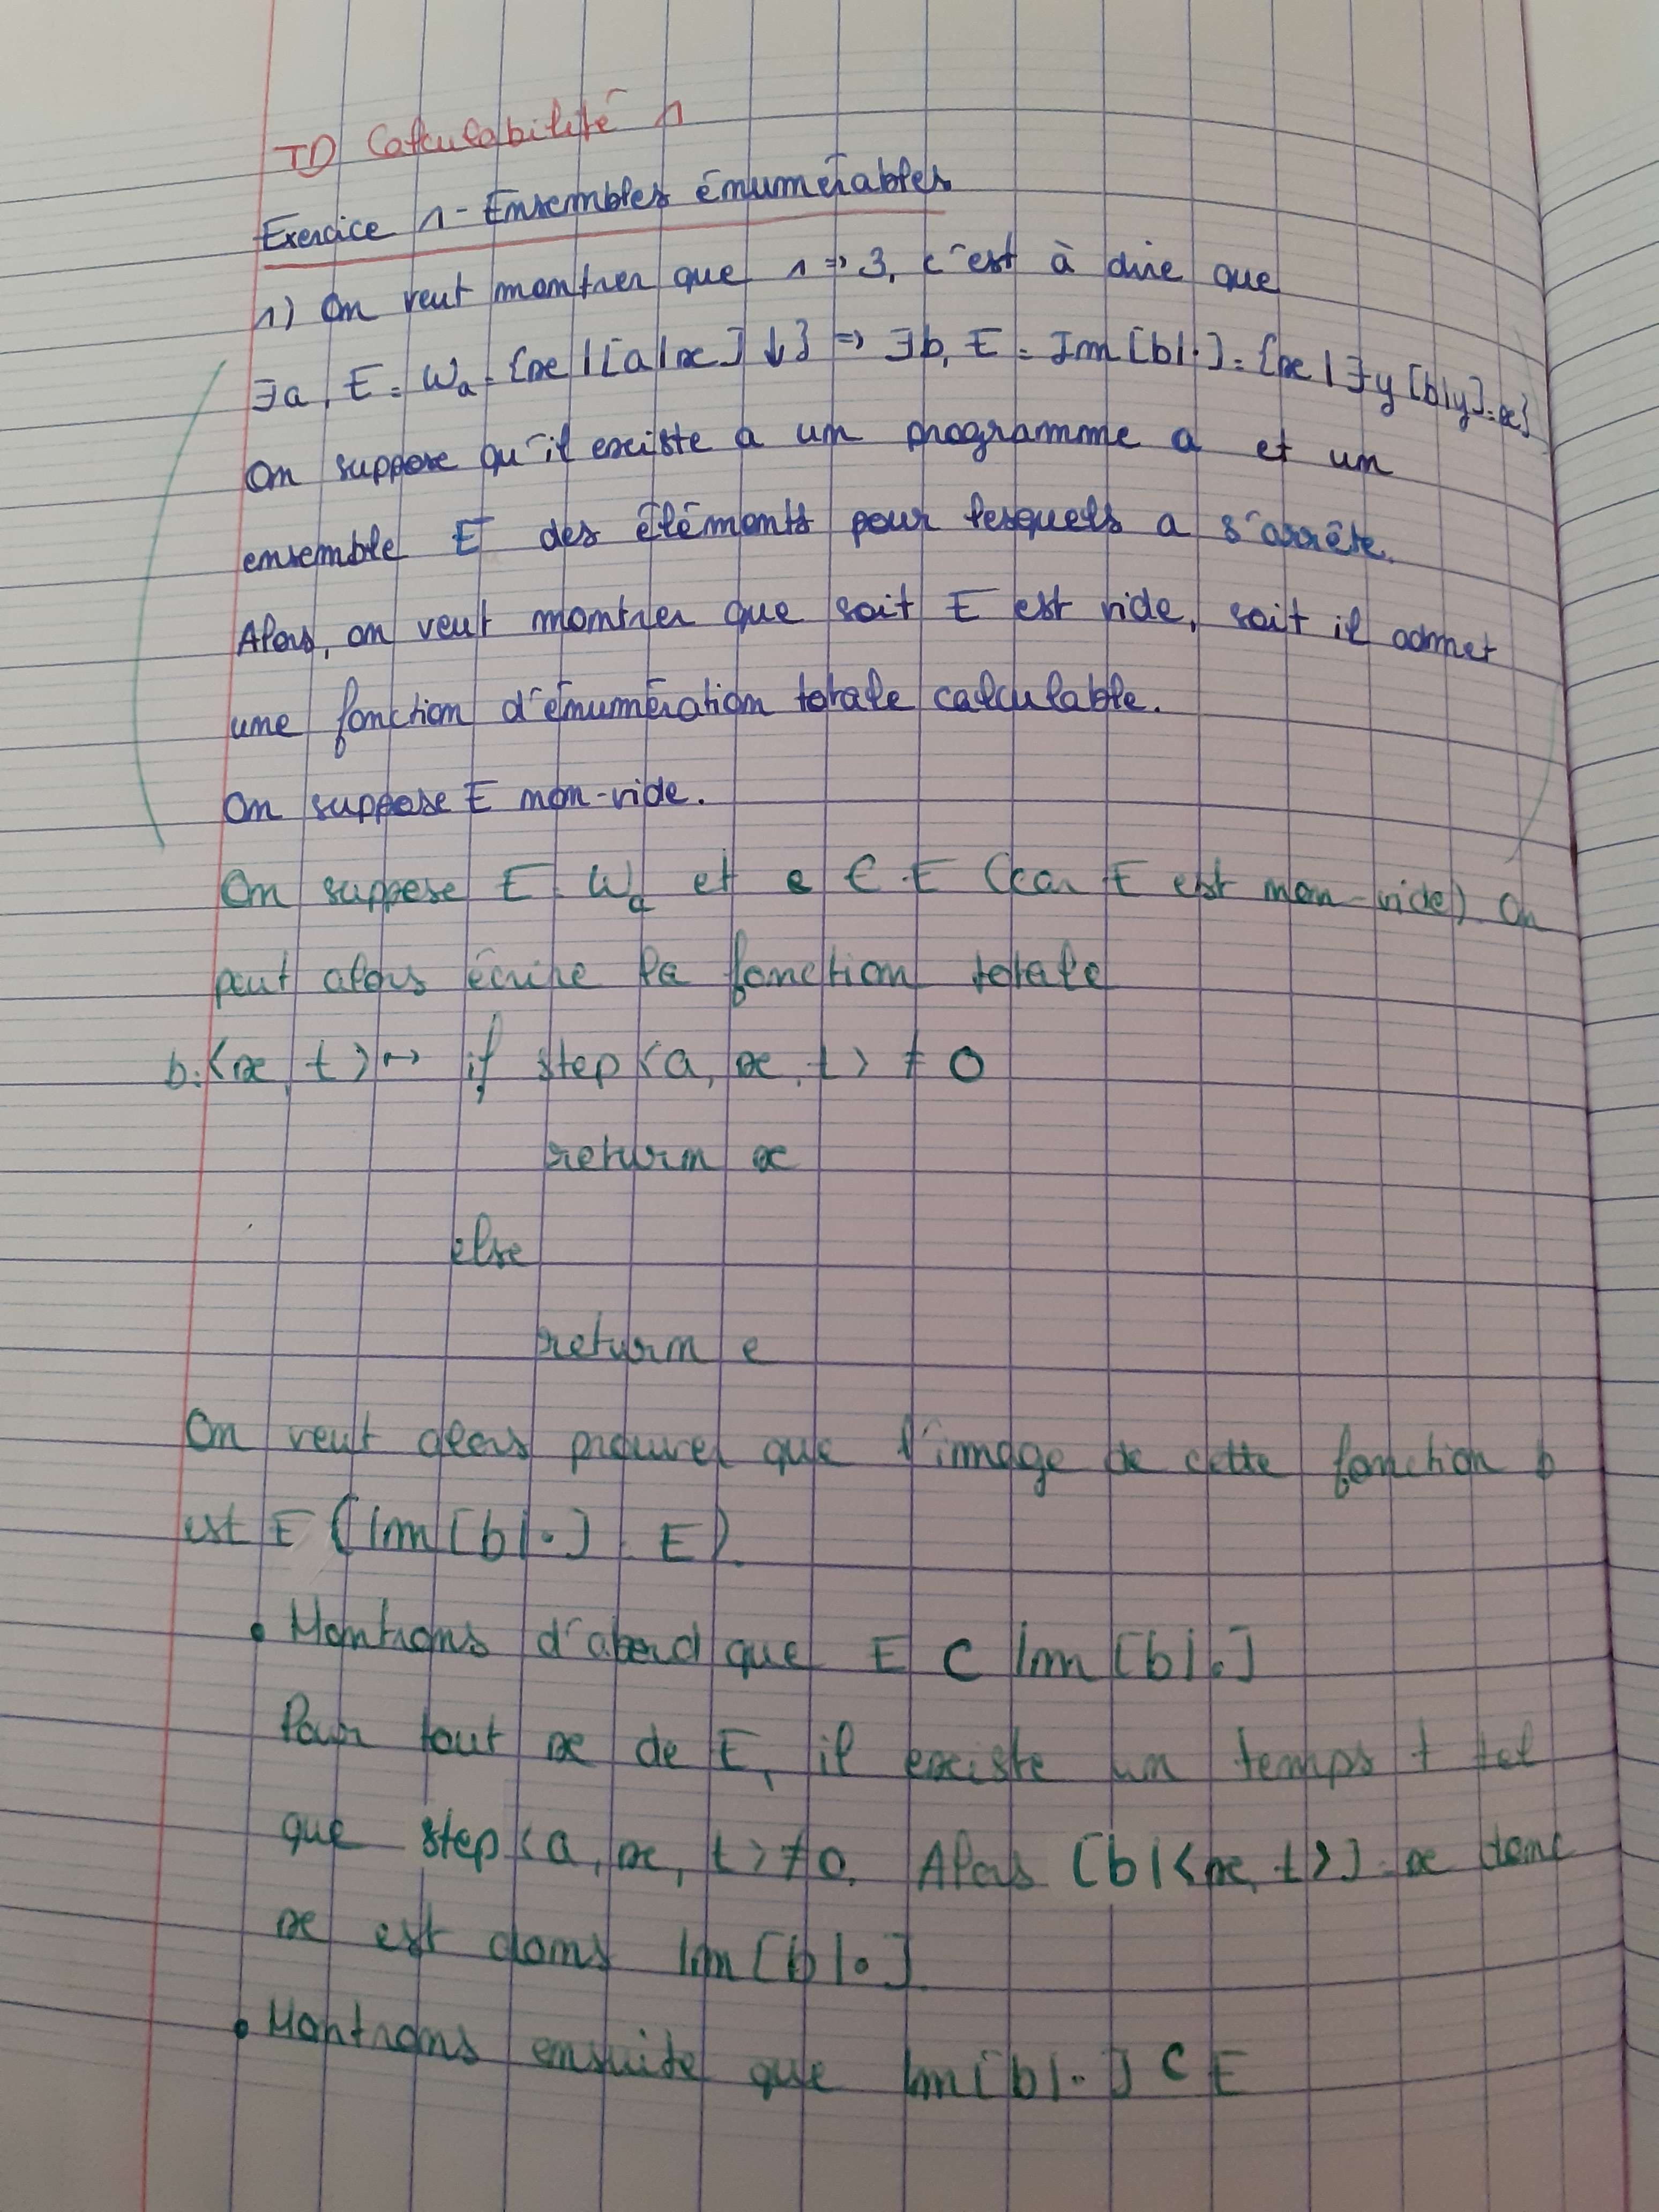 TD Calculabilité 1
Exercice 1 - Ensembles énumérables
1) On veut montrer que 1 => 3, c'est à dire que
∃a, E = Wa = {x | [a|x] ↓} => ∃b, E = Im [b|.] = {x | ∃y [b|y] = x}
On suppose qu'il existe a un programme a et un
ensemble E des éléments pour lesquels a s'arrête.
Alors, on veut montrer que soit E est vide, soit il admet
une fonction d'énumération totale calculable.
On suppose E non-vide.
On suppose E = Wa et e ∈ E (car E est non-vide) On
peut alors écrire la fonction totale
b: <x, t> ↦ if step <a, x, t> ≠ 0
return x
else
return e
On veut alors prouver que l'image de cette fonction b
est E (Im [b|.] = E).
• Montrons d'abord que E ⊂ Im [b|.]
Pour tout x de E, il existe un temps t tel
que step <a, x, t> ≠ 0. Alors [b|<x, t>] = x donc
x est dans Im [b|.]
• Montrons ensuite que Im [b|.] ⊂ E